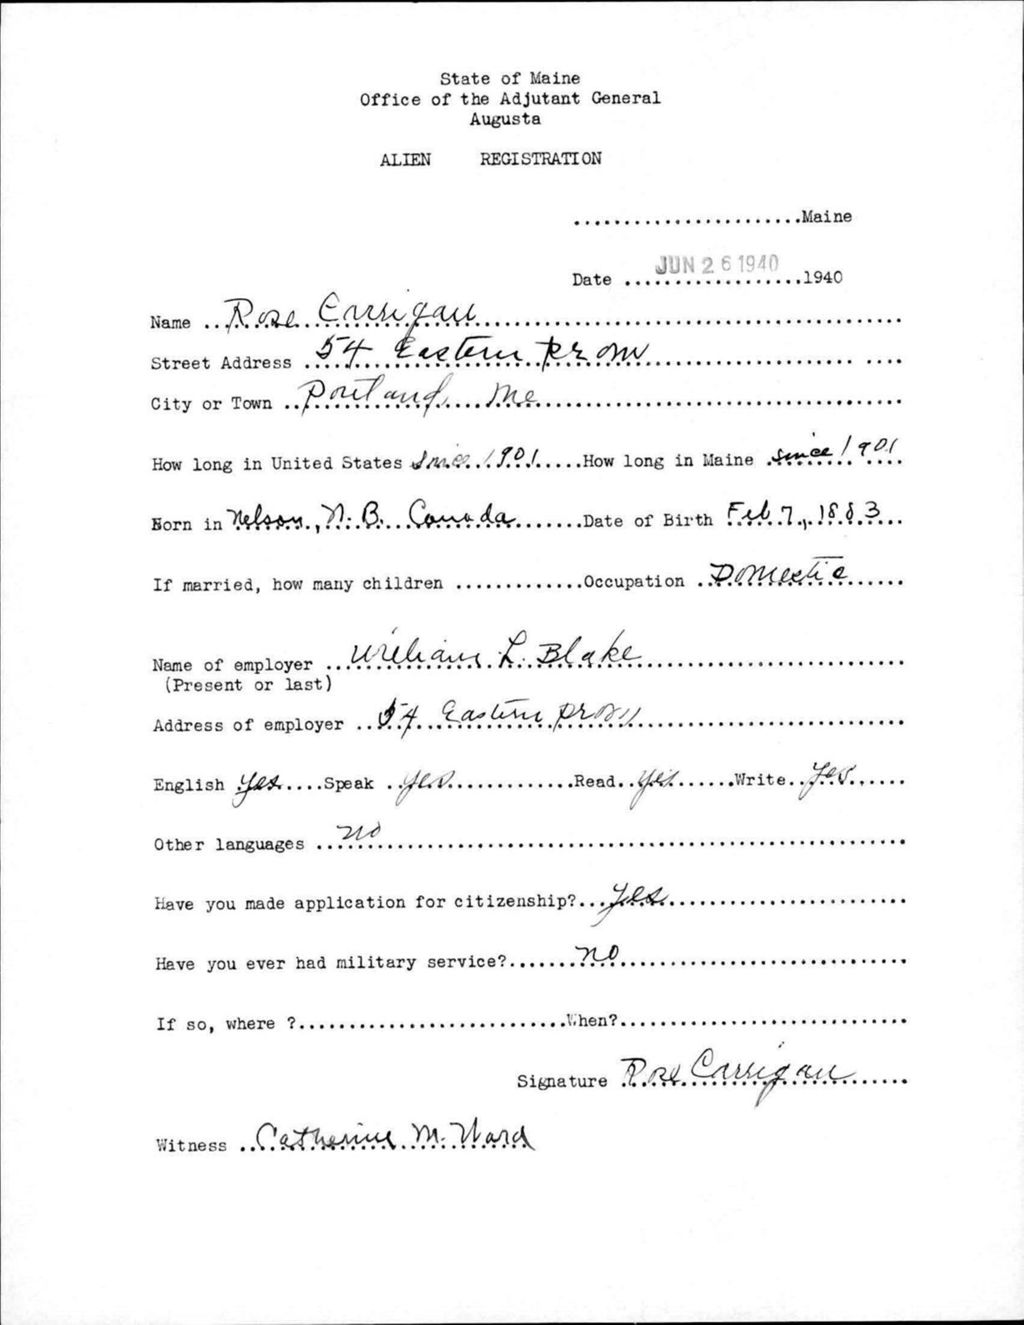 State of Maine
Office of the Adjutant General
Augusta
ALIEN REGISTRATION
.......................Maine
Date JUN 26 1940 ..................1940
Name .. Rose Carrigan
Street Address 54 Eastern Prom
City or Town .. Portland, Me
How long in United States Since 1901 .....How long in Maine since 1901
Born in Nelson, N. B. Canada .......Date of Birth Feb 7, 1883
If married, how many children .............Occupation .. Domestic
Name of employer ... William L. Blake
(Present or last)
Address of employer .. 54 Eastern Prom
English yes ....Speak .. yes .............Read.. yes ......Write.. yes
Other languages ... no
Have you made application for citizenship?... yes
Have you ever had military service?....... no
If so, where ?...........................When?............................
Signature Rose Carrigan
Witness .. Catherine M. Ward